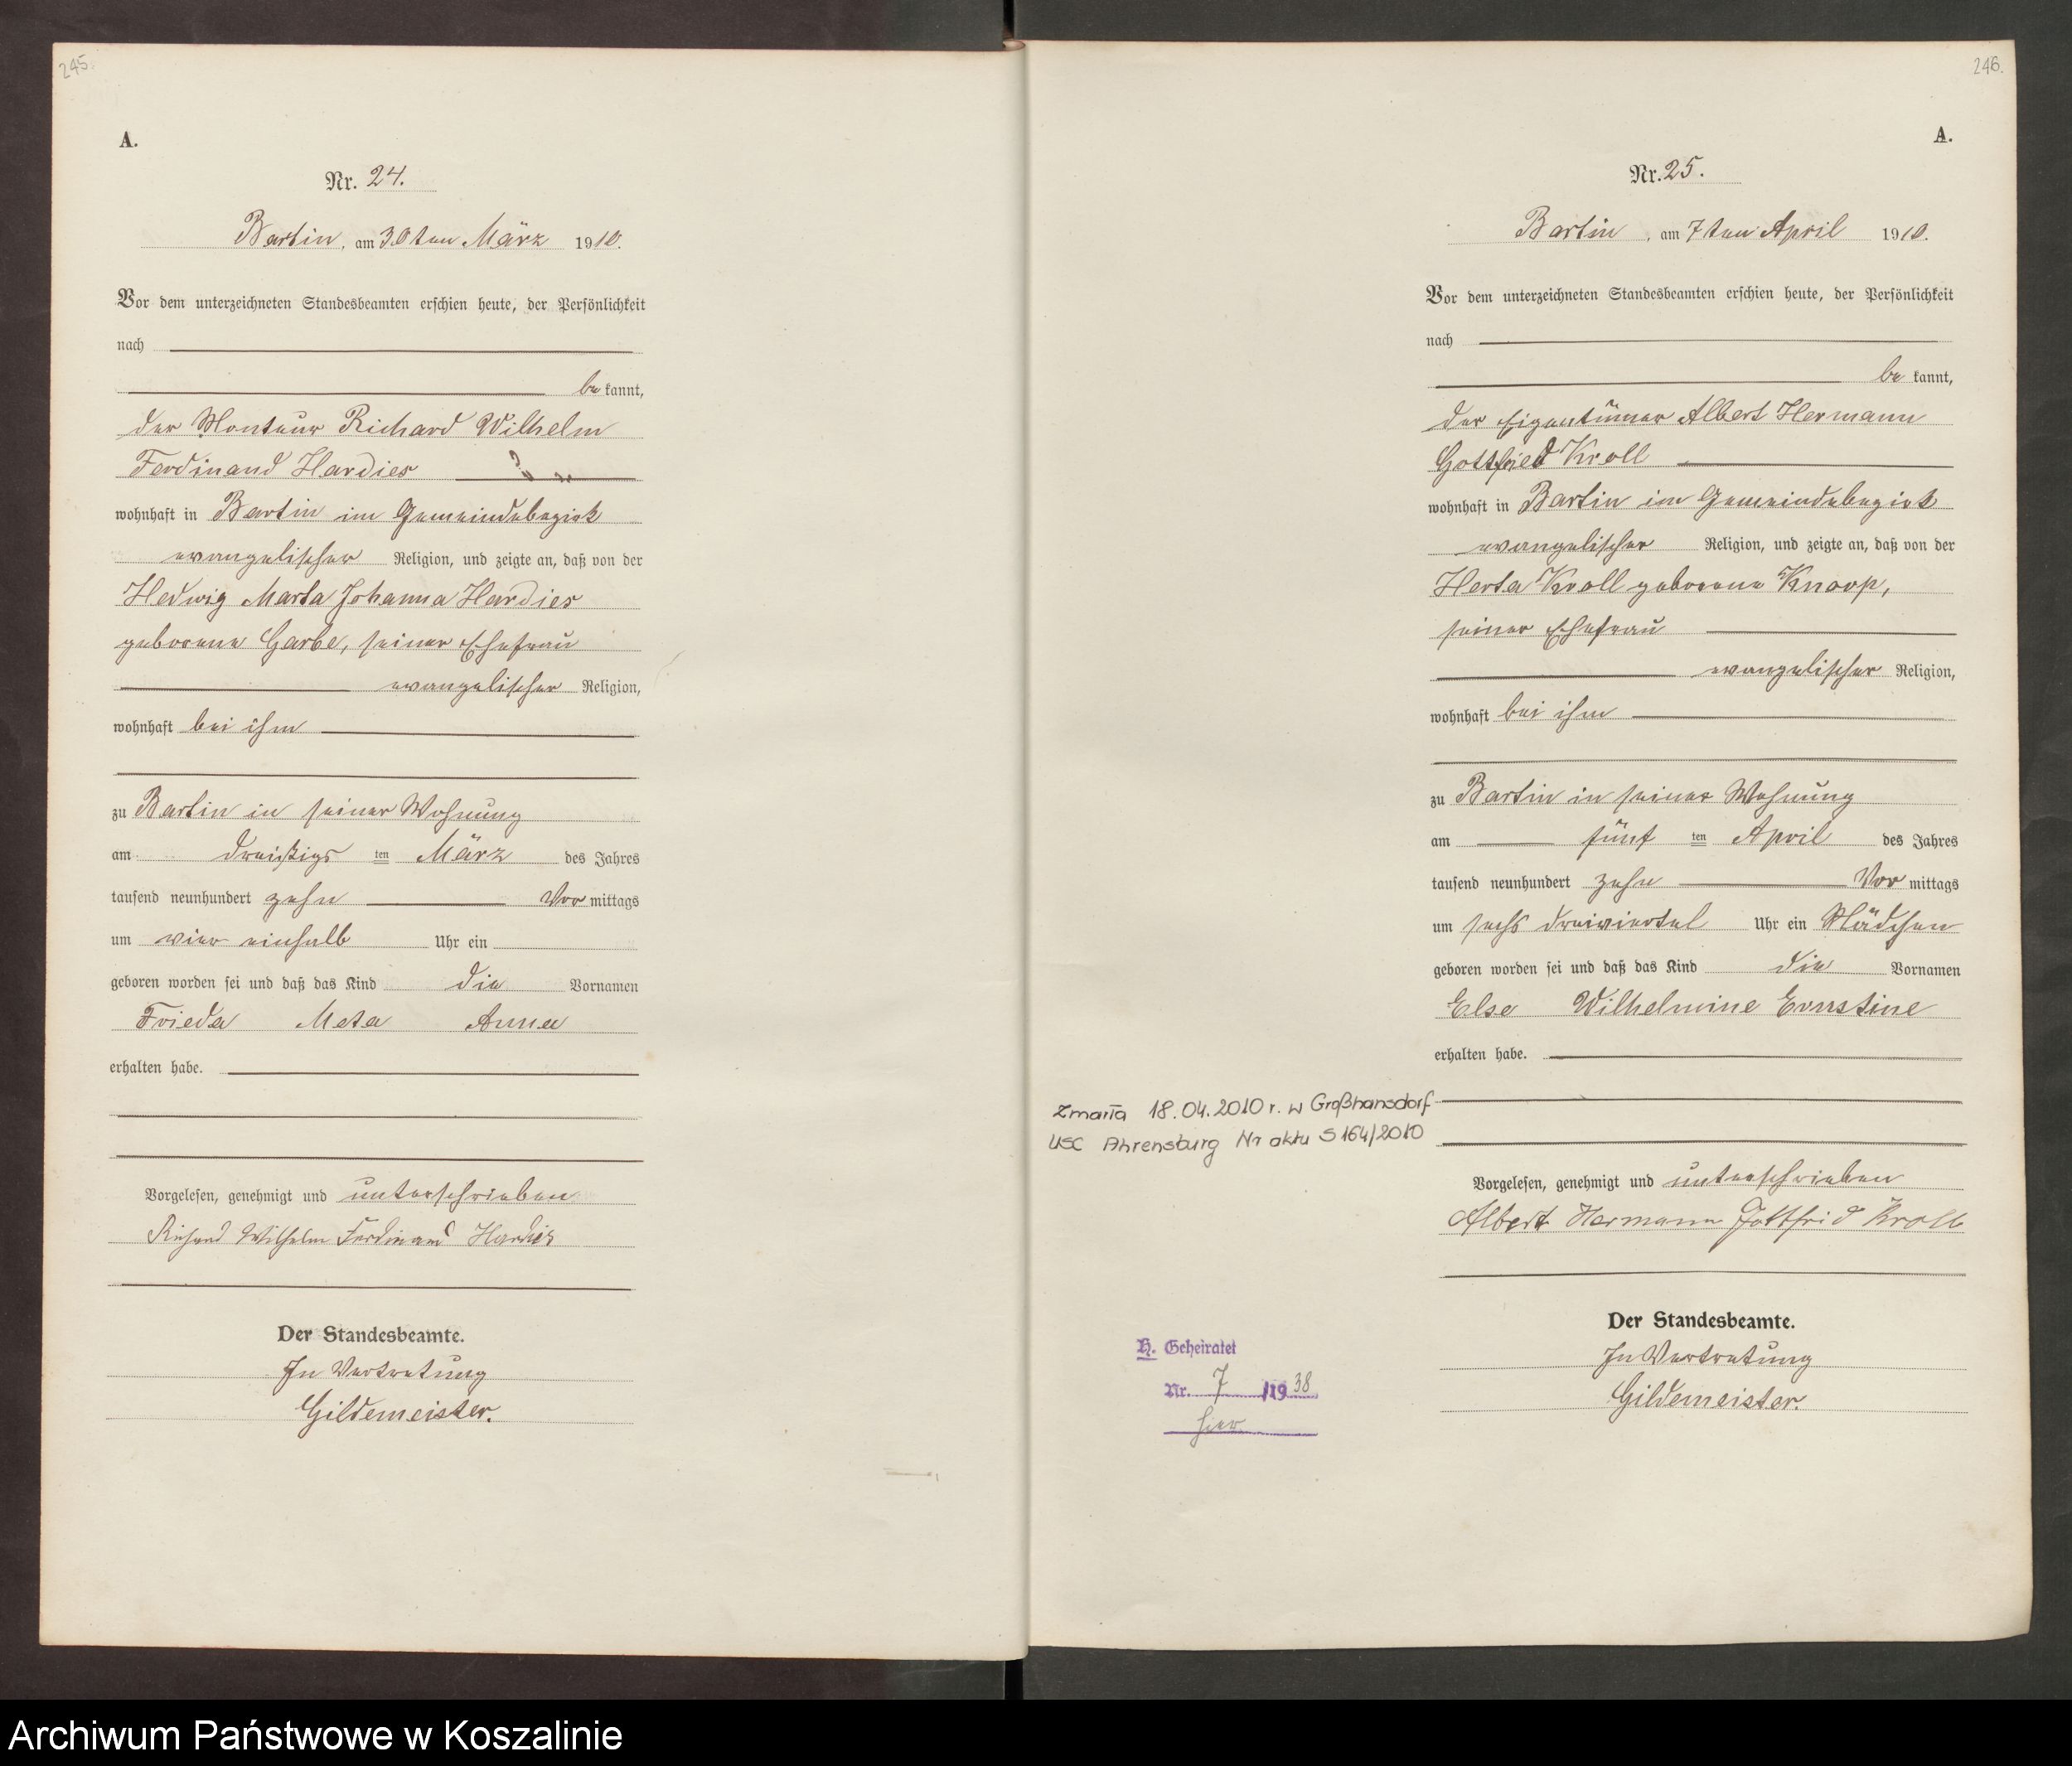 245.
A.
Nr. 24.
Bartin, am 30ten März 1910.
Vor dem unterzeichneten Standesbeamten erschien heute, der Persönlichkeit
nach
be kannt,
der Monteur Richard Wilhelm
Ferdinand Hardies
wohnhaft in Bartin im Gemeindebezirk
evangelischer Religion, und zeigte an, daß von der
Hedwig Marta Johanna Hardies
geborene Garbe, seiner Ehefrau
evangelischer Religion,
wohnhaft bei ihm
zu Bartin in seiner Wohnung
am dreißigs ten März des Jahres
tausend neunhundert zehn Vor mittags
um vier einhalb Uhr ein
geboren worden sei und daß das Kind die Vornamen
Frieda Meta Anna
erhalten habe.
Vorgelesen, genehmigt und unterschrieben
Richard Wilhelm Ferdinand Hardies
Der Standesbeamte.
In Vertretung
Gildemeister.
246.
A.
Nr. 25.
Bartin, am 7ten April 1910.
Vor dem unterzeichneten Standesbeamten erschien heute, der Persönlichkeit
nach
be kannt,
der Eigentümer Albert Hermann
Gottfried Kroll
wohnhaft in Bartin im Gemeindebezirk
evangelischer Religion, und zeigte an, daß von der
Herta Kroll geborene Knorp,
seiner Ehefrau
evangelischer Religion,
wohnhaft bei ihm
zu Bartin in seiner Wohnung
am fünf ten April des Jahres
tausend neunhundert zehn Vor mittags
um sechs dreiviertel Uhr ein Mädchen
geboren worden sei und daß das Kind die Vornamen
Else Wilhelmine Ernstine
erhalten habe.
Zmarła 18.04.2010 r. w Großhansdorf
USC Ahrensburg Nr aktu S 164/2010
Vorgelesen, genehmigt und unterschrieben
Albert Hermann Gottfrid Kroll
Der Standesbeamte.
In Vertretung
Gildemeister.
H. Geheiratet
Nr. 7 /1938
hier
Archiwum Państwowe w Koszalinie